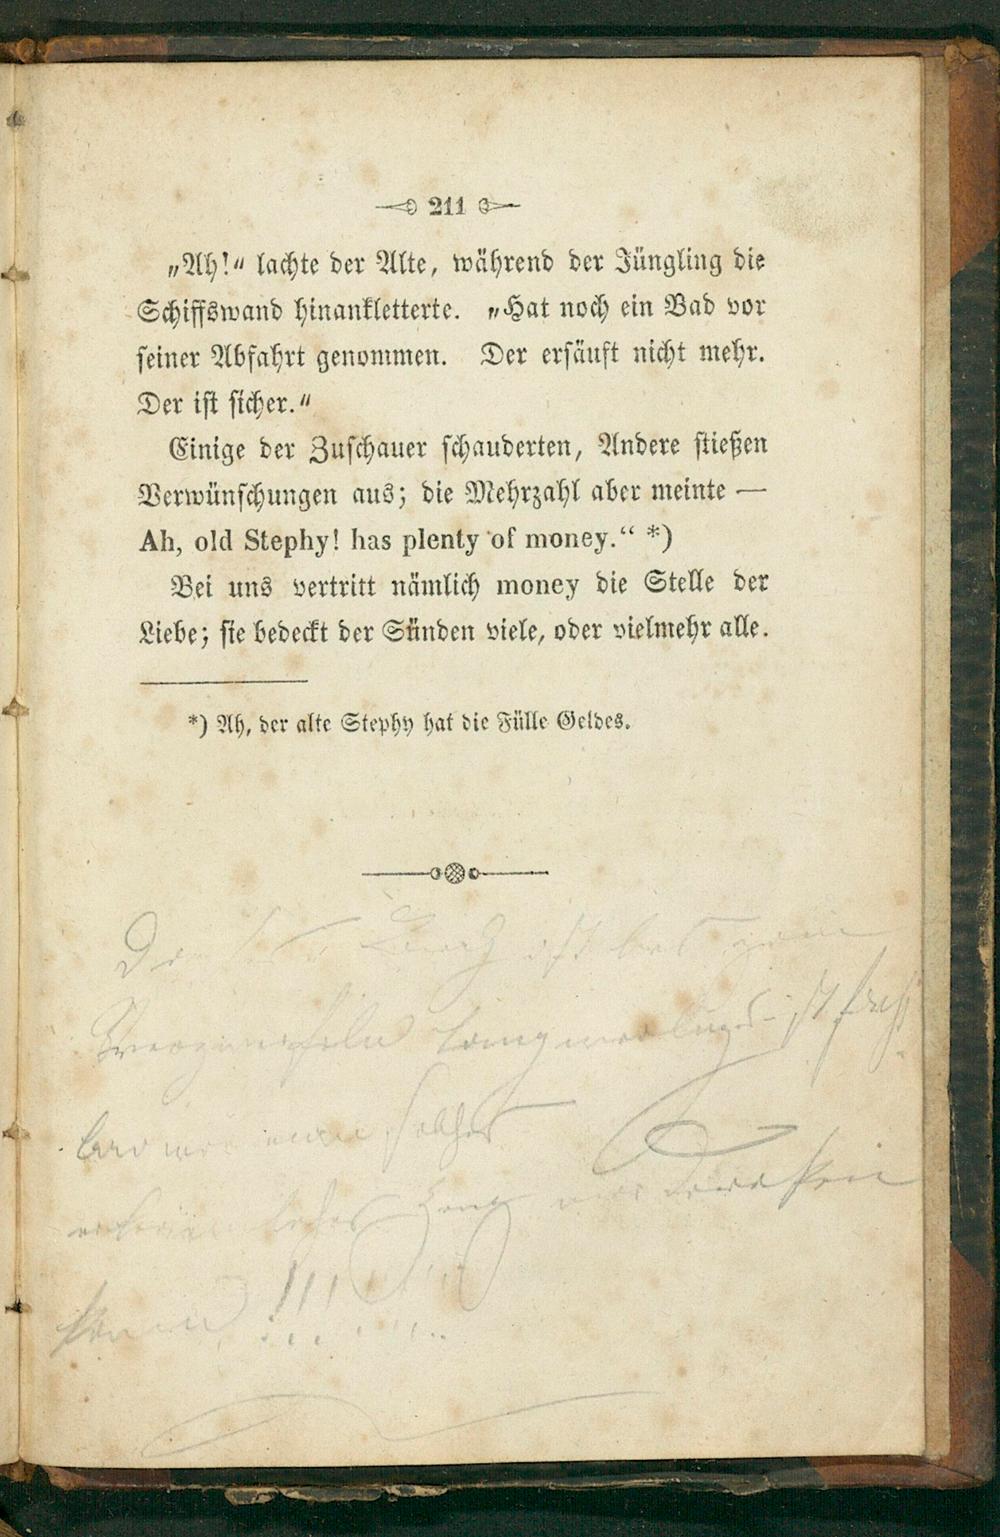 211
„Ah!“ lachte der Alte, während der Jüngling die
Schiffswand hinankletterte. „Hat noch ein Bad vor
seiner Abfahrt genommen. Der ersäuft nicht mehr.
Der ist sicher.“
Einige der Zuschauer schauderten, Andere stießen
Verwünschungen aus; die Mehrzahl aber meinte —
Ah, old Stephy! has plenty of money.“ *)
Bei uns vertritt nämlich money die Stelle der
Liebe; sie bedeckt der Sünden viele, oder vielmehr alle.
*) Ah, der alte Stephy hat die Fülle Geldes.
ist zum
Verzweifeln langweilig ist
wie ein solches
Zeug
kann !!!